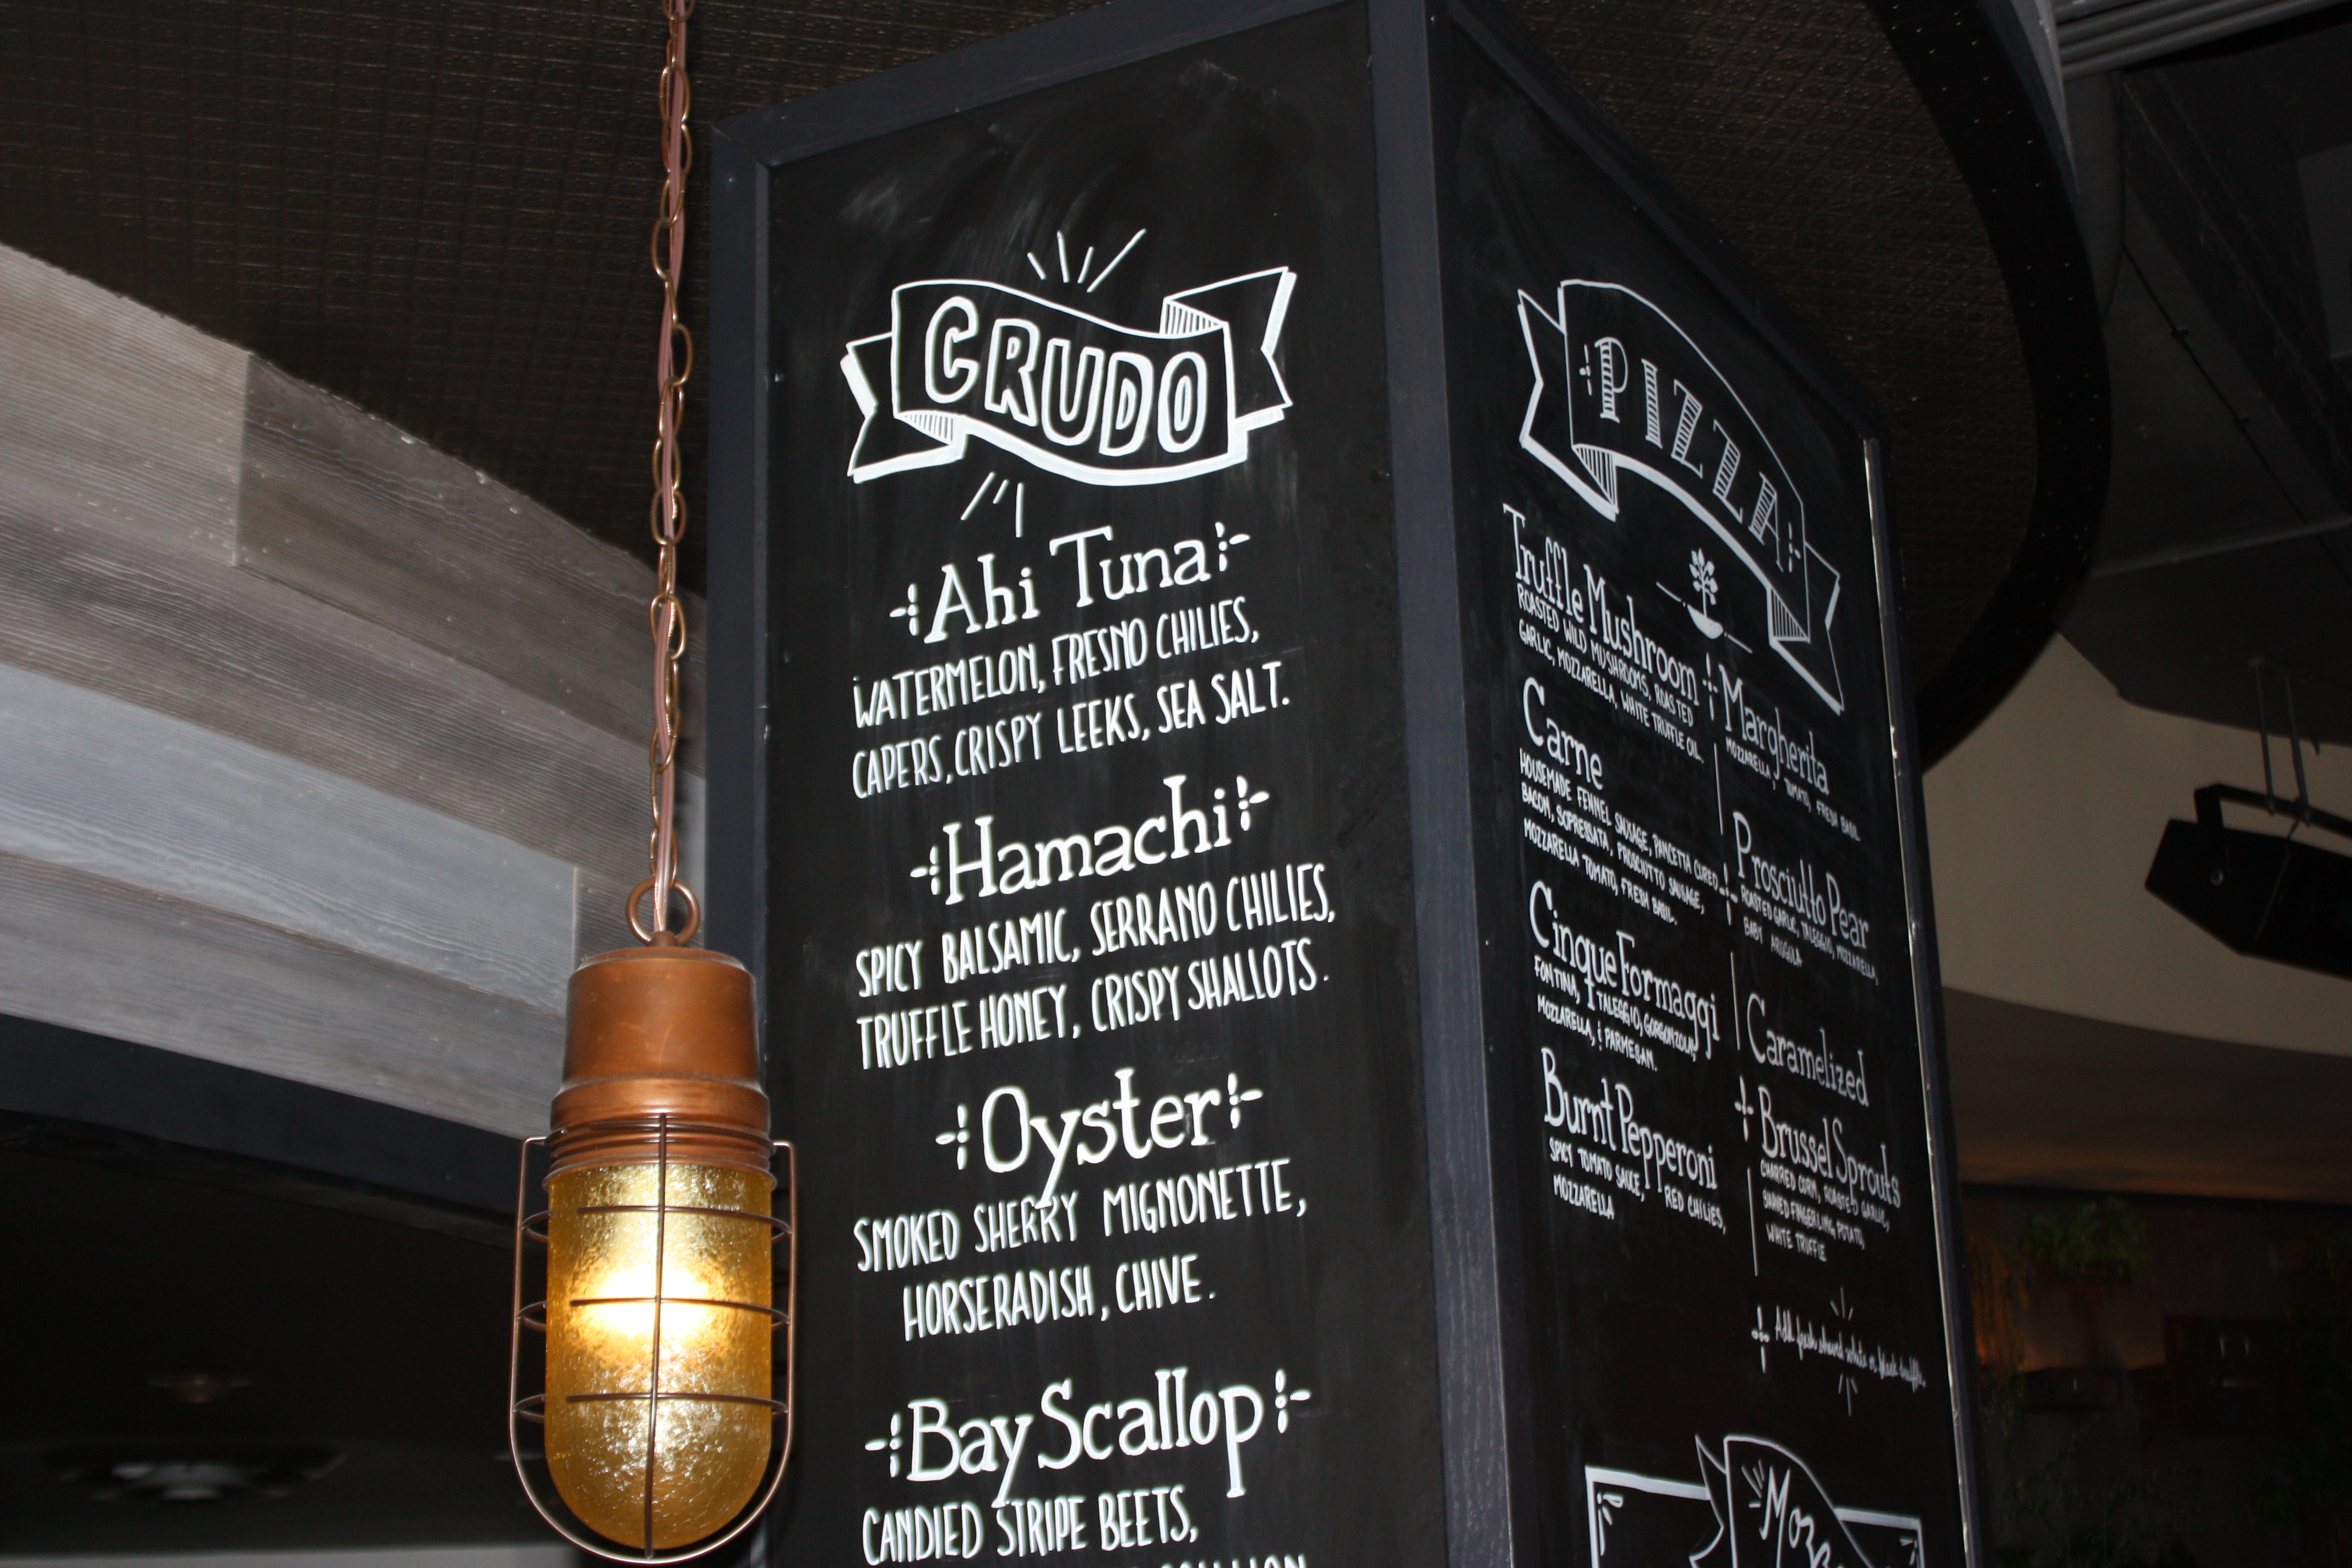 CRUDO
Ahi Tuna
WATERMELON, FRESNO CHILIES,
CAPERS, CRISPY LEEKS, SEA SALT.
Hamachi
SPICY BALSAMIC, SERRANO CHILIES,
TRUFFLE HONEY, CRISPY SHALLOTS.
Oyster
SMOKED SHERRY MIGNONETTE,
HORSERADISH, CHIVE.
Bay Scallop
CANDIED STRIPE BEETS,
PIZZA
Truffle Mushroom
ROASTED WILD MUSHROOMS, ROASTED
GARLIC, MOZZARELLA, WHITE TRUFFLE OIL.
Carne
HOUSEMADE FENNEL SAUSAGE, PANCETTA CURED
BACON, SOPRESSATA, PROSCIUTTO SAUSAGE,
MOZZARELLA TOMATO, FRESH BASIL.
Cinque Formaggi
FONTINA, TALEGGIO, GORGONZOLA,
MOZZARELLA, & PARMESAN.
Burnt Pepperoni
SPICY TOMATO SAUCE, RED CHILIES,
MOZZARELLA
Margherita
MOZZARELLA, TOMATO, FRESH BASIL
Prosciutto Pear
ROASTED GARLIC, TALEGGIO, MOZZARELLA,
BABY ARUGULA
Caramelized
Brussel Sprouts
CHARRED CORN, ROASTED GARLIC,
SHAVED FINGERLING POTATO,
WHITE TRUFFLE
Add fresh shaved white or black truffle.